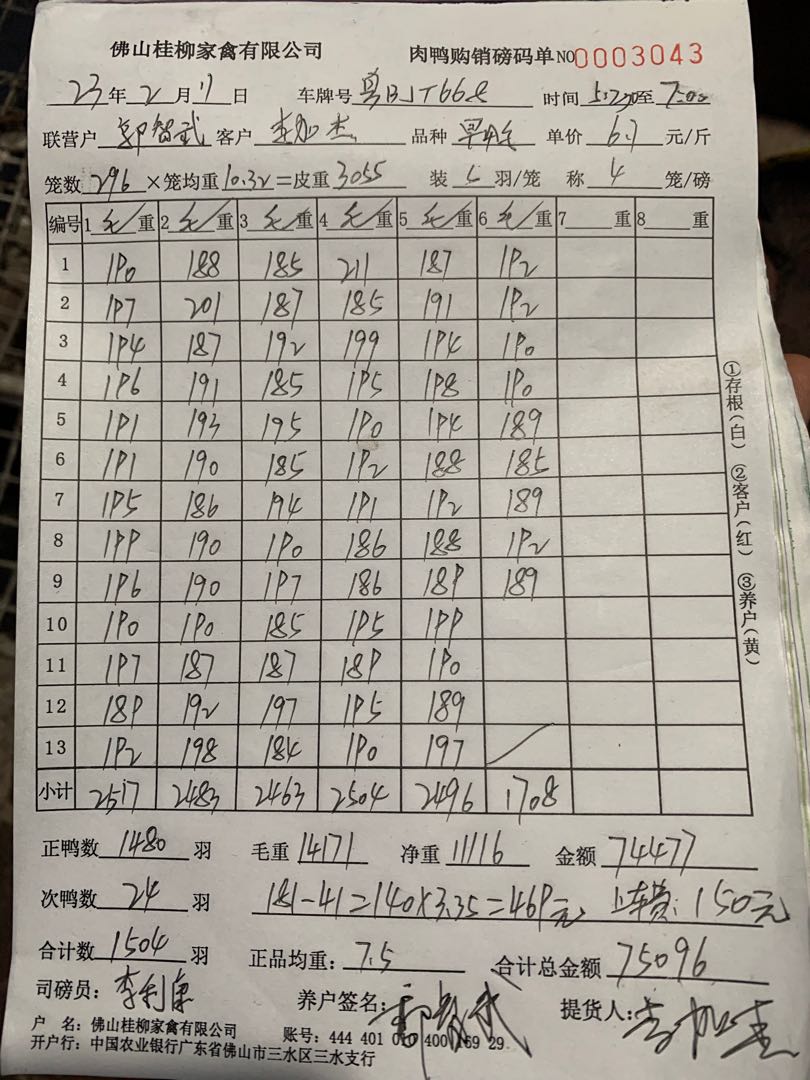 佛山桂柳家禽有限公司 肉鸭购销磅码单 NO 0003043
23年2月11日 车牌号 粤BJT668 时间 至7:00
联营户 郭智武 客户 李加杰 品种 单价 6.7 元/斤
笼数 296 ×笼均重 10.32 =皮重 3055 装 5 羽/笼 称 4 笼/磅
编号 1 毛/重 2 毛/重 3 毛/重 4 毛/重 5 毛/重 6 毛/重 7 重 8 重
1 190 188 185 211 187 192
2 197 201 187 185 191 192
3 194 187 192 199 194 190
4 196 191 185 195 198 190
5 191 193 195 190 194 189
6 191 190 185 192 188 185
7 195 186 194 191 192 189
8 199 190 190 186 188 192
9 196 190 197 186 189 189
10 190 190 185 195 199
11 197 187 187 189 190
12 189 192 197 195 189
13 192 198 184 190 197
小计 2517 2483 2463 2504 2496 1708
正鸭数 1480 羽 毛重 14171 净重 11116 金额 74477
次鸭数 24 羽 181-41=140×3.35=469元 上车费:150元
合计数 1504 羽 正品均重: 7.5 合计总金额 75096
司磅员: 李利康 养户签名: 郭智武 提货人: 李加杰
户 名: 佛山桂柳家禽有限公司 账号: 444 401 0 400 69 29
开户行: 中国农业银行广东省佛山市三水区三水支行
①存根(白) ②客户(红) ③养户(黄)